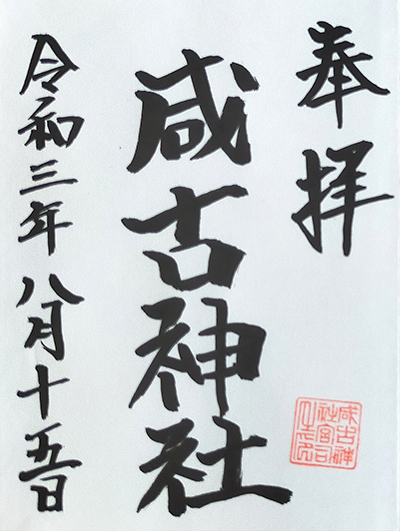 奉拝
咸古神社
令和三年八月十五日
咸古神
社宮司
之印